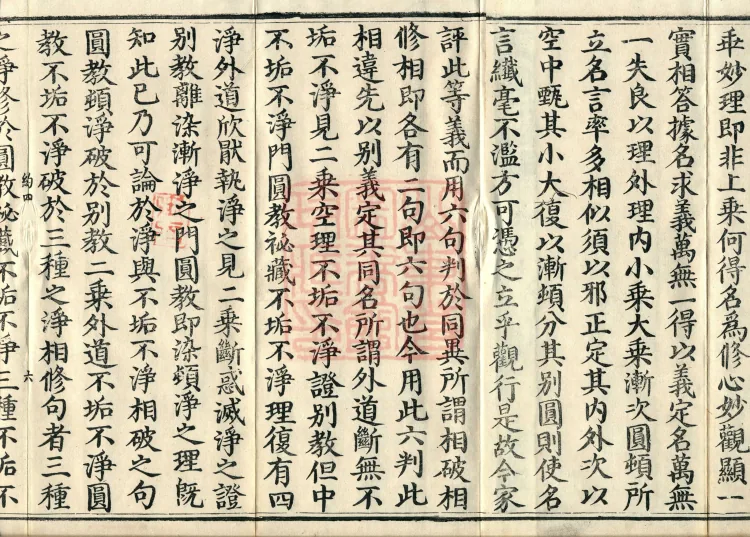 乖妙理即非上乘何得名爲修心妙觀顯一
實相答據名求義萬無一得以義定名萬無
一失良以理外理内小乘大乘漸次圓頓所
立名言率多相似須以邪正定其内外次以
空中甄其小大復以漸頓分其別圓則使名
言纖毫不濫方可憑之立乎觀行是故今家
評此等義而用六句判於同異所謂相破相
修相即各有二句即六句也今用此六判此
相違先以別義定其同名所謂外道斷無不
垢不淨見二乘空理不垢不淨證別教但中
不垢不淨門圓教祕藏不垢不淨理復有四
淨外道欣猒執淨之見二乘斷惑滅淨之證
別教離染漸淨之門圓教即染頓淨之理旣
知此已乃可論於淨與不垢不淨相破之句
圓教頓淨破於別教二乘外道不垢不淨圓
教不垢不淨破於三種之淨相修句者三種
約四 六
之淨修於圓教祕藏不垢不淨三種不垢不